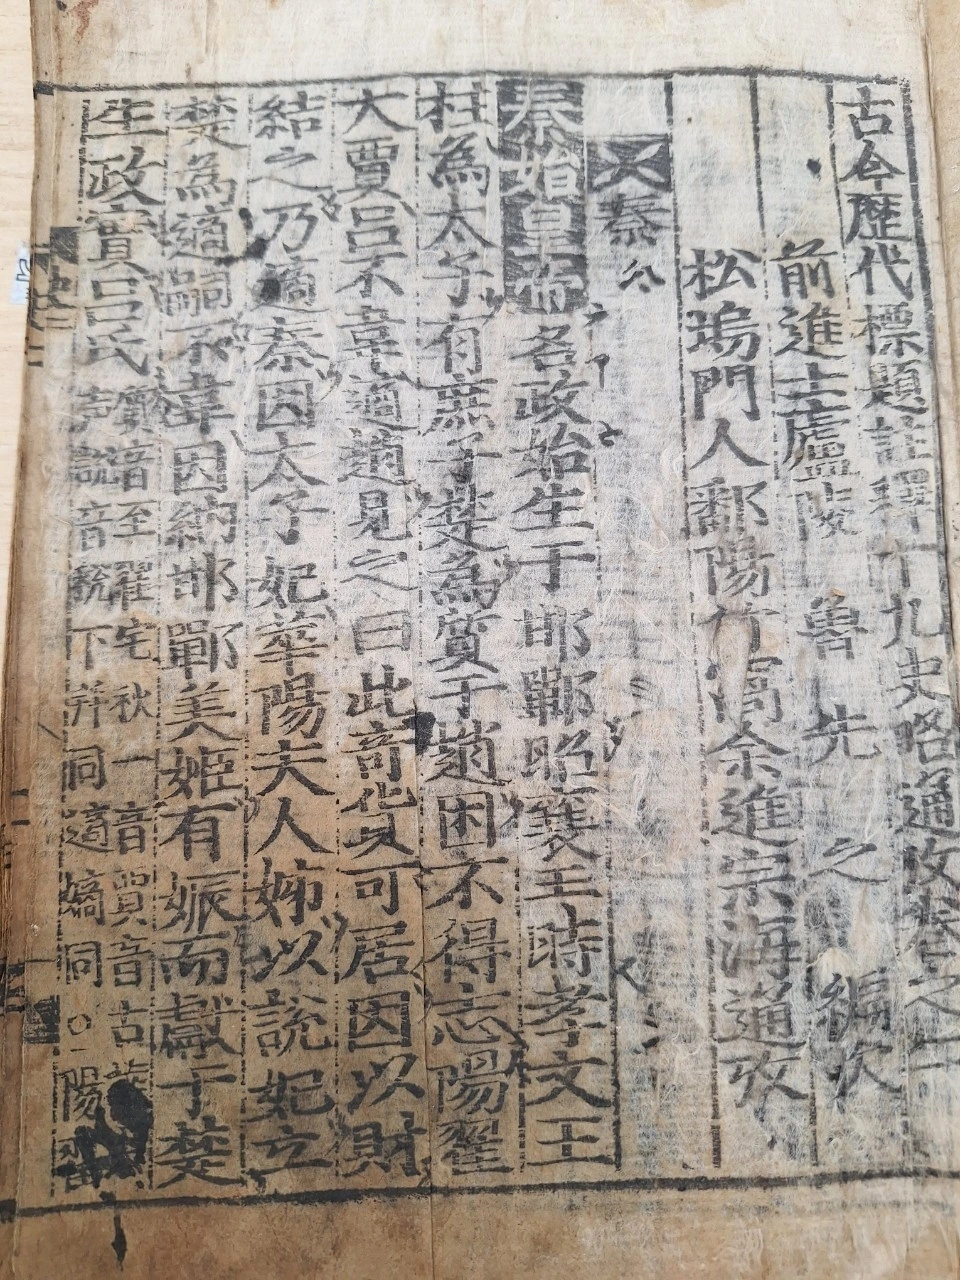 古今歷代標題註釋十九史略通攷卷之二
前進士廬陵 魯 先 之 編次
松塢門人鄱陽竹窩余進宗海通攷
秦
秦始皇帝名政始生于邯鄲昭襄王時孝文王
柱為太子有庶子楚為質于趙困不得志陽翟
大賈呂不韋適趙見之曰此奇貨可居因以財
結之乃適秦因太子妃華陽夫人姊以說妃立
楚為適嗣不韋因納邯鄲美姬有娠而獻于楚
生政實呂氏
質音至翟宅秋一音賈音古
說音稅下幷同適嫡同○陽翟